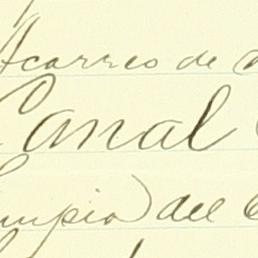 Acarreo de
Canal
Limpia) del